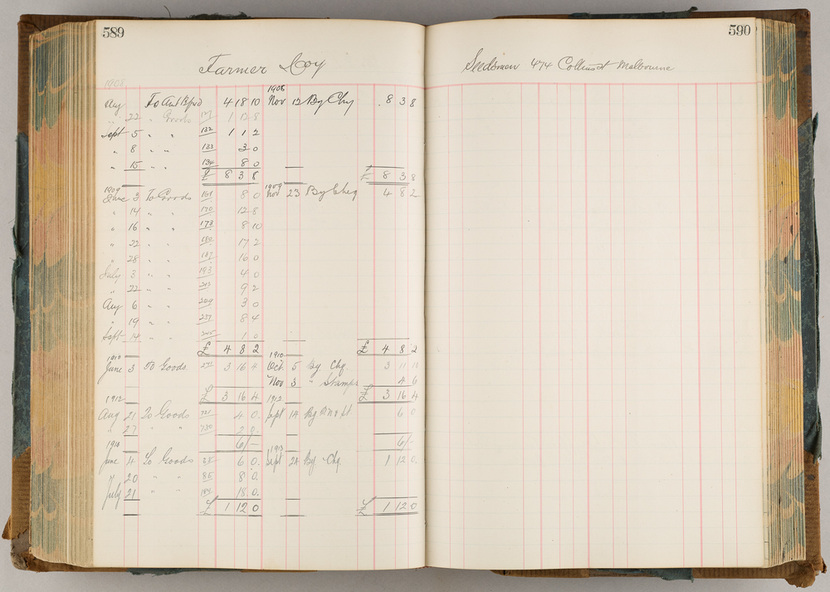 589
Farmer Coy
1908
Aug To Acct Bfwd 4 18 10 1908 Nov 12 By Chq 8 3 8
" 22 " Goods 1 12 8
Sept 5 " " 122 1 1 2
" 8 " " 123 3 0
" 15 " " 134 8 0
£ 8 3 8 £ 8 3 8
1909 June 3 To Goods 161 8 0 1909 Nov 23 By Cheq 4 8 2
" 14 " " 170 12 8
" 16 " " 173 8 10
" 22 " " 17 2
" 28 " " 187 16 0
July 3 " " 193 4 0
" 22 " " 9 2
Aug 6 " " 229 3 0
" 19 " " 8 4
Sept 14 " " 1 0
£ 4 8 2 £ 4 8 2
1910 June 3 To Goods 3 16 4 1910 Oct 5 By Chq 3 11 10
Nov 3 " Stamps 4 6
£ 3 16 4 £ 3 16 4
1912 Aug 21 To Goods 721 4 0 1912 Sept 14 By 6 0
" 27 " " 730 2 0
6/- 6/-
June 4 To Goods 6 0 Sept 24 By Chq 1 12 0
" 20 " " 85 8 0
July 21 " " 18 0
£ 1 12 0 £ 1 12 0
590
Seedsman 474 Collins St Melbourne